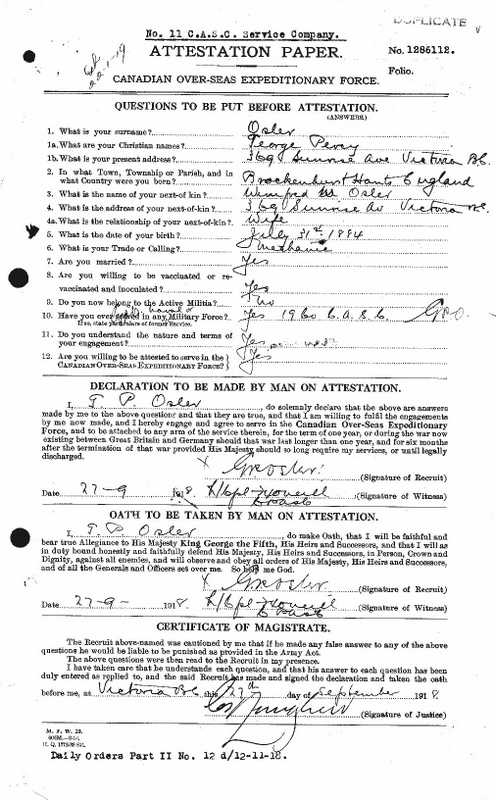 DUPLICATE
No. 11 C.A.S.C. Service Company.
ATTESTATION PAPER.
No. 1286112.
Folio.
CANADIAN OVER-SEAS EXPEDITIONARY FORCE.
QUESTIONS TO BE PUT BEFORE ATTESTATION.
(ANSWERS)
1. What is your surname? Osler
1a. What are your Christian names? George Percy
1b. What is your present address? 369 Sunrise Ave Victoria B.C.
2. In what Town, Township or Parish, and in
what Country were you born? Brockenhurst Hants England
3. What is the name of your next-of-kin? Winifred M Osler
4. What is the address of your next-of-kin? 369 Sunrise Av Victoria B.C.
4a. What is the relationship of your next-of-kin? Wife
5. What is the date of your birth? July 31st 1884
6. What is your Trade or Calling? Mechanic
7. Are you married? Yes
8. Are you willing to be vaccinated or re-
vaccinated and inoculated? Yes
9. Do you now belong to the Active Militia? No
10. Have you ever served in any Military Force? Yes 19 Co C.A.S.C.
If so, state particulars of former Service.
11. Do you understand the nature and terms of
your engagement? Yes
12. Are you willing to be attested to serve in the
CANADIAN OVER-SEAS EXPEDITIONARY FORCE? Yes
DECLARATION TO BE MADE BY MAN ON ATTESTATION.
I, G. P. Osler, do solemnly declare that the above are answers
made by me to the above questions and that they are true, and that I am willing to fulfil the engagements
by me now made, and I hereby engage and agree to serve in the Canadian Over-Seas Expeditionary
Force, and to be attached to any arm of the service therein, for the term of one year, or during the war now
existing between Great Britain and Germany should that war last longer than one year, and for six months
after the termination of that war provided His Majesty should so long require my services, or until legally
discharged.
X GPOsler. (Signature of Recruit)
Date 27-9 1918. (Signature of Witness)
OATH TO BE TAKEN BY MAN ON ATTESTATION.
I, G. P. Osler, do make Oath, that I will be faithful and
bear true Allegiance to His Majesty King George the Fifth, His Heirs and Successors, and that I will as
in duty bound honestly and faithfully defend His Majesty, His Heirs and Successors, in Person, Crown and
Dignity, against all enemies, and will observe and obey all orders of His Majesty, His Heirs and Successors,
and of all the Generals and Officers set over me. So help me God.
X GPOsler (Signature of Recruit)
Date 27-9- 1918 (Signature of Witness)
CERTIFICATE OF MAGISTRATE.
The Recruit above-named was cautioned by me that if he made any false answer to any of the above
questions he would be liable to be punished as provided in the Army Act.
The above questions were then read to the Recruit in my presence.
I have taken care that he understands each question, and that his answer to each question has been
duly entered as replied to, and the said Recruit has made and signed the declaration and taken the oath
before me, at Victoria B.C. this 27th day of September 1918
(Signature of Justice)
M. F. W. 23.
Daily Orders Part II No. 12 d/12-11-18.